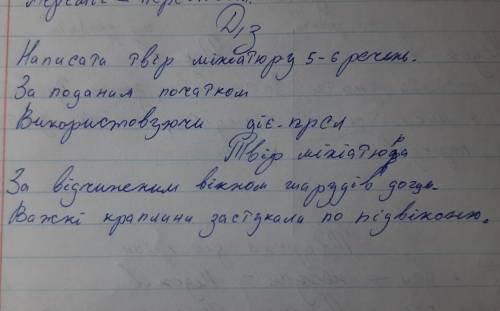 Д/З
Написати твір мініатюру 5-6 речень.
За поданим початком
Використовуючи діє-прсл
Твір мініатюра
За відчиненим вікном шарудів дощ.
Важкі краплини застукали по підвіконню.